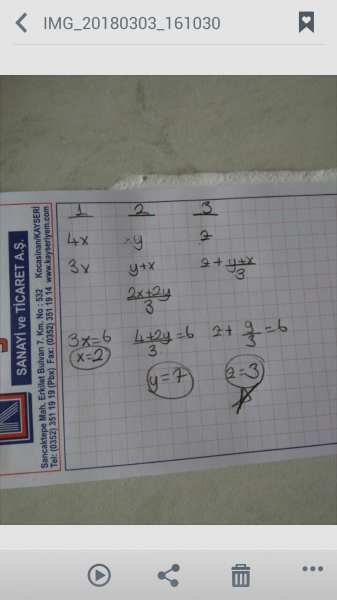 IMG_20180303_161030
1 2 3
4x xy z
3x y+x z+ y+x/3
2x+2y/3
3x=6 4+2y/3 =6 z+ 9/3 =6
x=2 y=7 z=3
SANAYİ ve TİCARET A.Ş.
Sancaktepe Mah. Erkilet Bulvarı 7. Km. No : 532 Kocasinan/KAYSERİ
Tel: (0352) 351 19 19 (Pbx) Fax: (0352) 351 19 14 www.kayseriyem.com